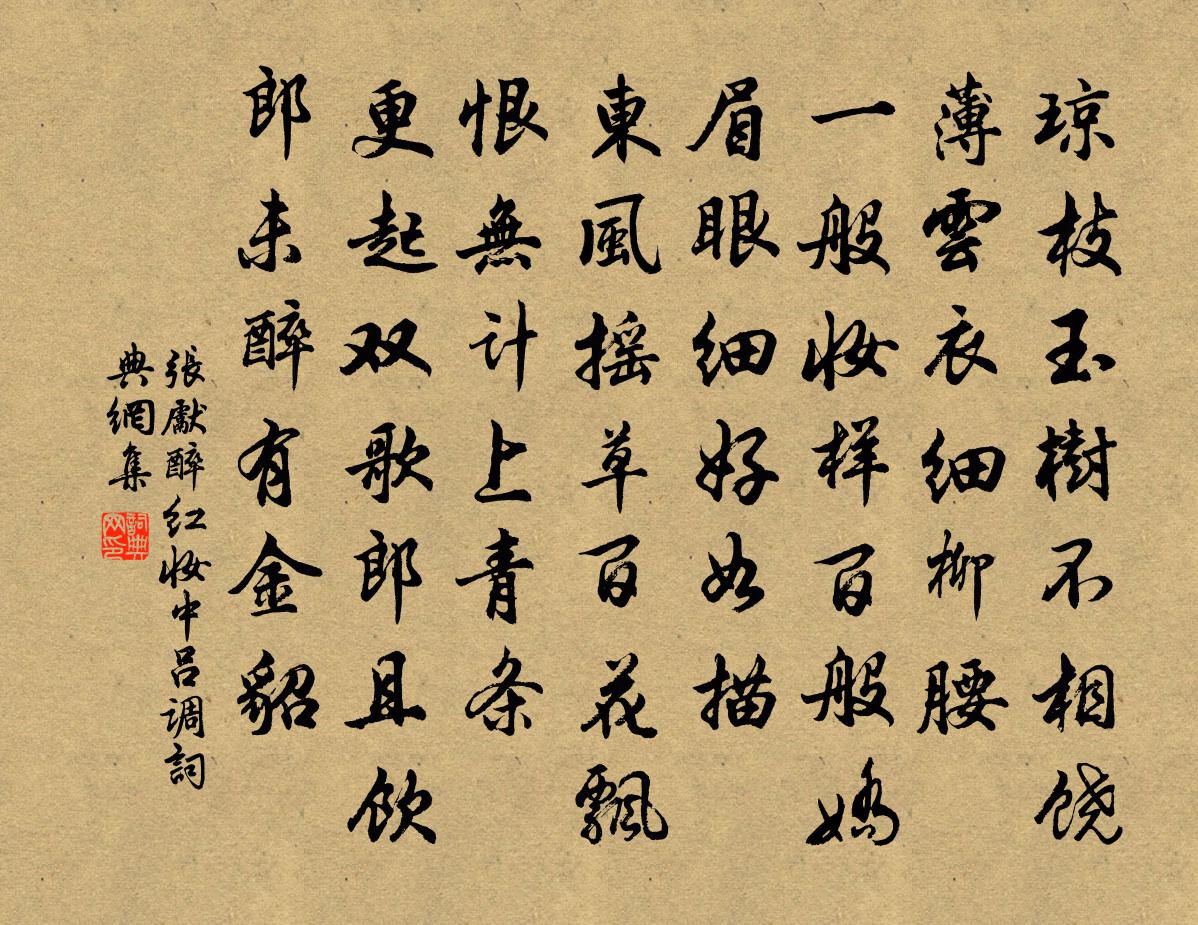 琼枝玉樹不相饶
薄雲衣细柳腰
一般妆样百般嬌
眉眼细好如描
東風摇草百花飄
恨無计上青条
更起双歌郎且饮
郎未醉有金貂
張獻醉红妆中吕调詞
典網集
詞典网印